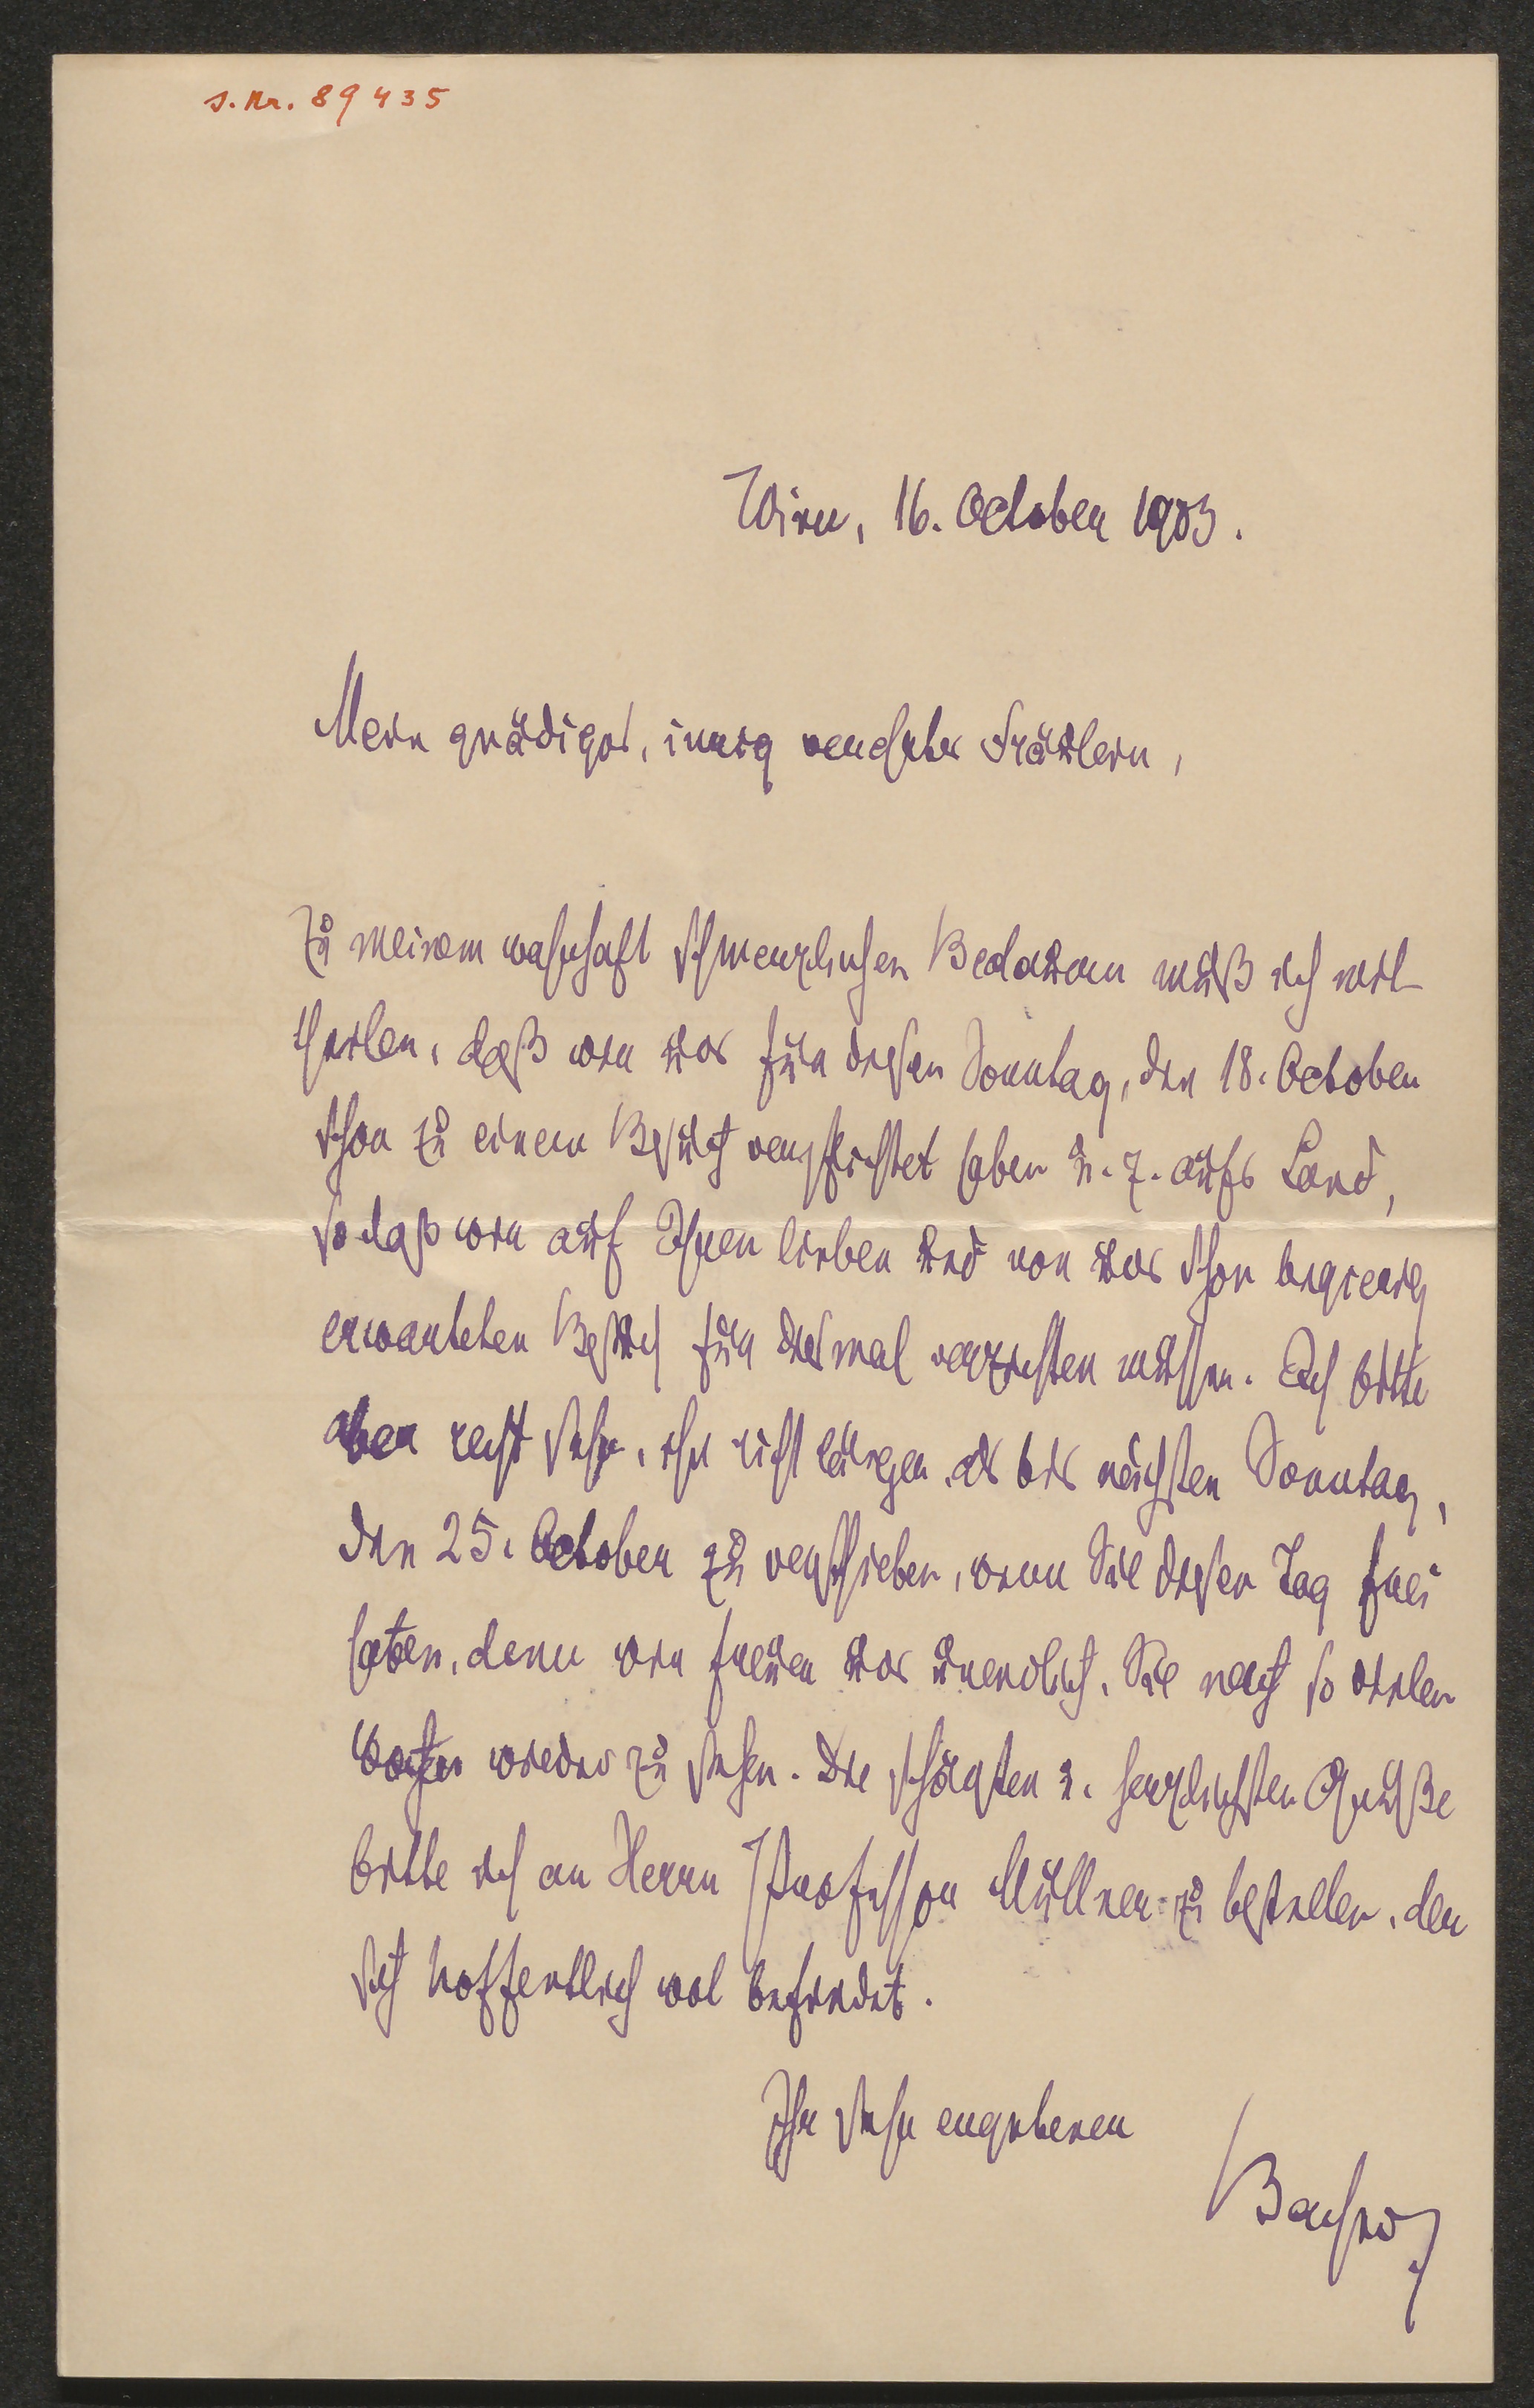 s. Nr. 89435
Wien, 16. October 1903.
Mein gnädiges, innig verehrtes Fräulein,
Zu meinem wahrhaft schmerzlichen Bedauern muß ich mit-
theilen, daß wir uns für diesen Sonntag, den 18. October
schon zu einem Besuch verpflichtet haben u. z. aufs Land,
so daß wir auf Ihren lieben und von uns schon begierig
erwarteten Besuch für diesmal verzichten müssen. Ich bitte
aber recht sehr, ihn nicht länger als bis nächsten Sonntag,
den 25. October zu verschieben, wenn Sie diesen Tag frei
haben, denn wir freuen uns unendlich, Sie nach so vielen
Wochen wieder zu sehen. Die schönsten u. herzlichsten Grüße
bitte ich an Herrn Professor Müllner zu bestellen, der
sich hoffentlich wol befindet.
Ihr sehr ergebener